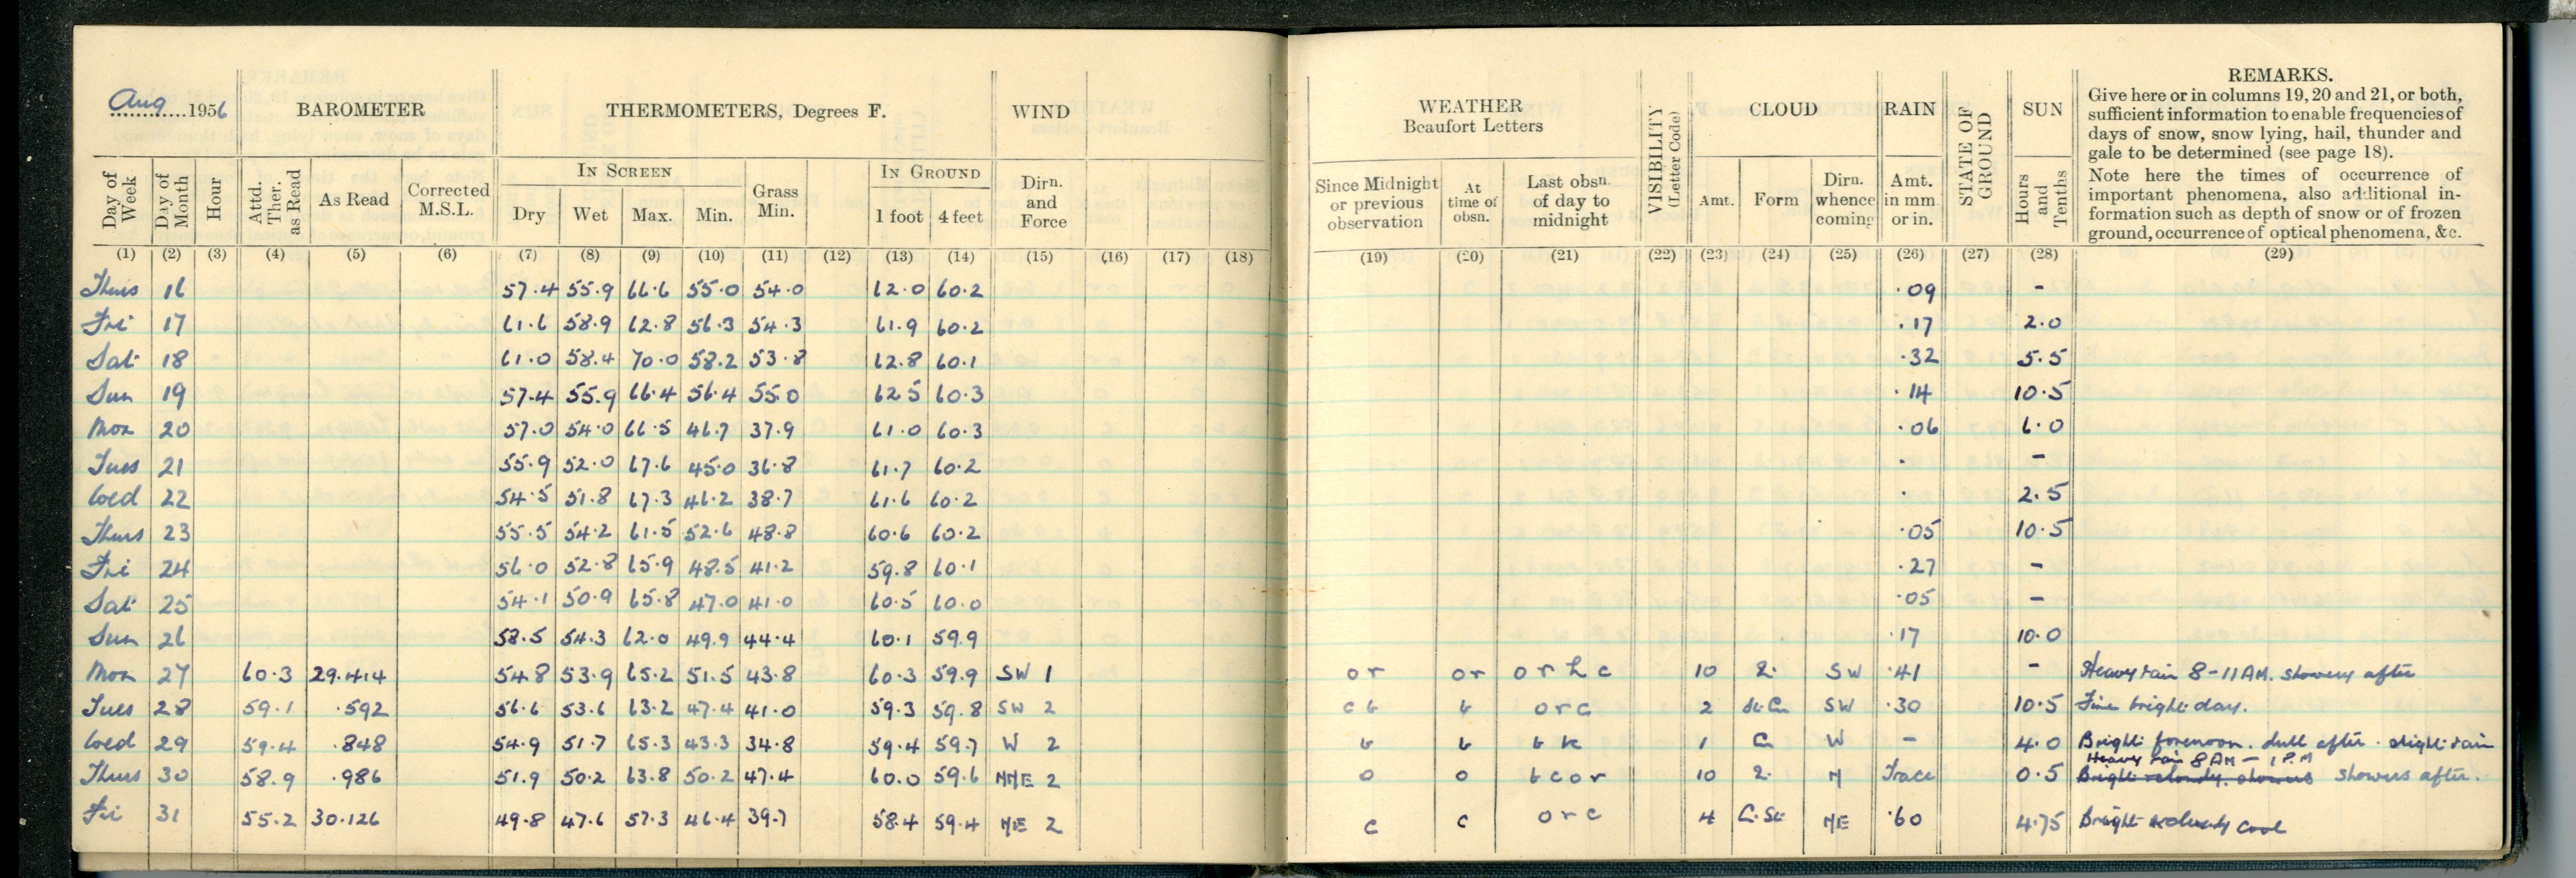 Aug 1956
BAROMETER
THERMOMETERS, Degrees F.
WIND
Day of Week
Day of Month
Hour
Attd. Ther. as Read
As Read
Corrected M.S.L.
IN SCREEN
Dry
Wet
Max.
Min.
Grass Min.
IN GROUND
1 foot
4 feet
Dirn. and Force
WEATHER
Beaufort Letters
Since Midnight or previous observation
At time of obsn.
Last obsn. of day to midnight
VISIBILITY (Letter Code)
CLOUD
Amt.
Form
Dirn. whence coming
RAIN
Amt. in mm or in.
STATE OF GROUND
SUN
Hours and Tenths
REMARKS.
Give here or in columns 19, 20 and 21, or both,
sufficient information to enable frequencies of
days of snow, snow lying, hail, thunder and
gale to be determined (see page 18).
Note here the times of occurrence of
important phenomena, also additional in-
formation such as depth of snow or of frozen
ground, occurrence of optical phenomena, &c.
(1) (2) (3) (4) (5) (6) (7) (8) (9) (10) (11) (12) (13) (14) (15) (16) (17) (18) (19) (20) (21) (22) (23) (24) (25) (26) (27) (28) (29)
Thurs 16 57.4 55.9 66.6 55.0 54.0 62.0 60.2 .09 -
Fri 17 61.6 58.9 62.8 56.3 54.3 61.9 60.2 .17 2.0
Sat 18 61.0 58.4 70.0 58.2 53.8 62.8 60.1 .32 5.5
Sun 19 57.4 55.9 66.4 56.4 55.0 62.5 60.3 .14 10.5
Mon 20 57.0 54.0 66.5 46.7 37.9 61.0 60.3 .06 6.0
Tues 21 55.9 52.0 67.6 45.0 36.8 61.7 60.2 . -
Wed 22 54.5 51.8 67.3 46.2 38.7 61.6 60.2 . 2.5
Thurs 23 55.5 54.2 61.5 52.6 48.8 60.6 60.2 .05 10.5
Fri 24 56.0 52.8 65.9 48.5 41.2 59.8 60.1 .27 -
Sat 25 54.1 50.9 65.8 47.0 41.0 60.5 60.0 .05 -
Sun 26 58.5 54.3 62.0 49.9 44.4 60.1 59.9 .17 10.0
Mon 27 60.3 29.414 54.8 53.9 65.2 51.5 43.8 60.3 59.9 SW 1 or or 10 SW .41 - Heavy rain 8-11 AM. showery after
Tues 28 59.1 .592 56.6 53.6 63.2 47.4 41.0 59.3 59.8 SW 2 cb b orc 2 SW .30 10.5 Fine bright day.
Wed 29 59.4 .848 54.9 51.7 65.3 43.3 34.8 59.4 59.7 W 2 b b 1 W - 4.0 Bright forenoon. dull after. slight rain
Heavy rain 8 AM - 1 P.M
Thurs 30 58.9 .986 51.9 50.2 63.8 50.2 47.4 60.0 59.6 NNE 2 o o bcor 10 N Trace 0.5 showers after.
Fri 31 55.2 30.126 49.8 47.6 57.3 46.4 39.7 58.4 59.4 NE 2 c c orc 4 NE .60 4.75 Bright cool